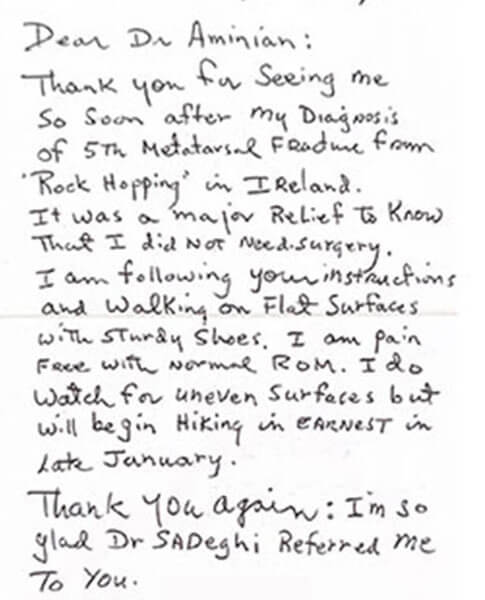 Dear Dr Aminian:
Thank you for Seeing me
So Soon after my Diagnosis
of 5Th Metatarsal Fracture from
"Rock Hopping" in IReland.
It was a major Relief To Know
That I did NoT Need surgery.
I am following your instructions
and Walking on Flat Surfaces
with STurdy Shoes. I am pain
Free with Normal ROM. I do
Watch for uneven Surfaces but
will begin Hiking in EARNEST in
Late January.
Thank You again: I'm so
glad Dr SADeghi Referred me
To You.